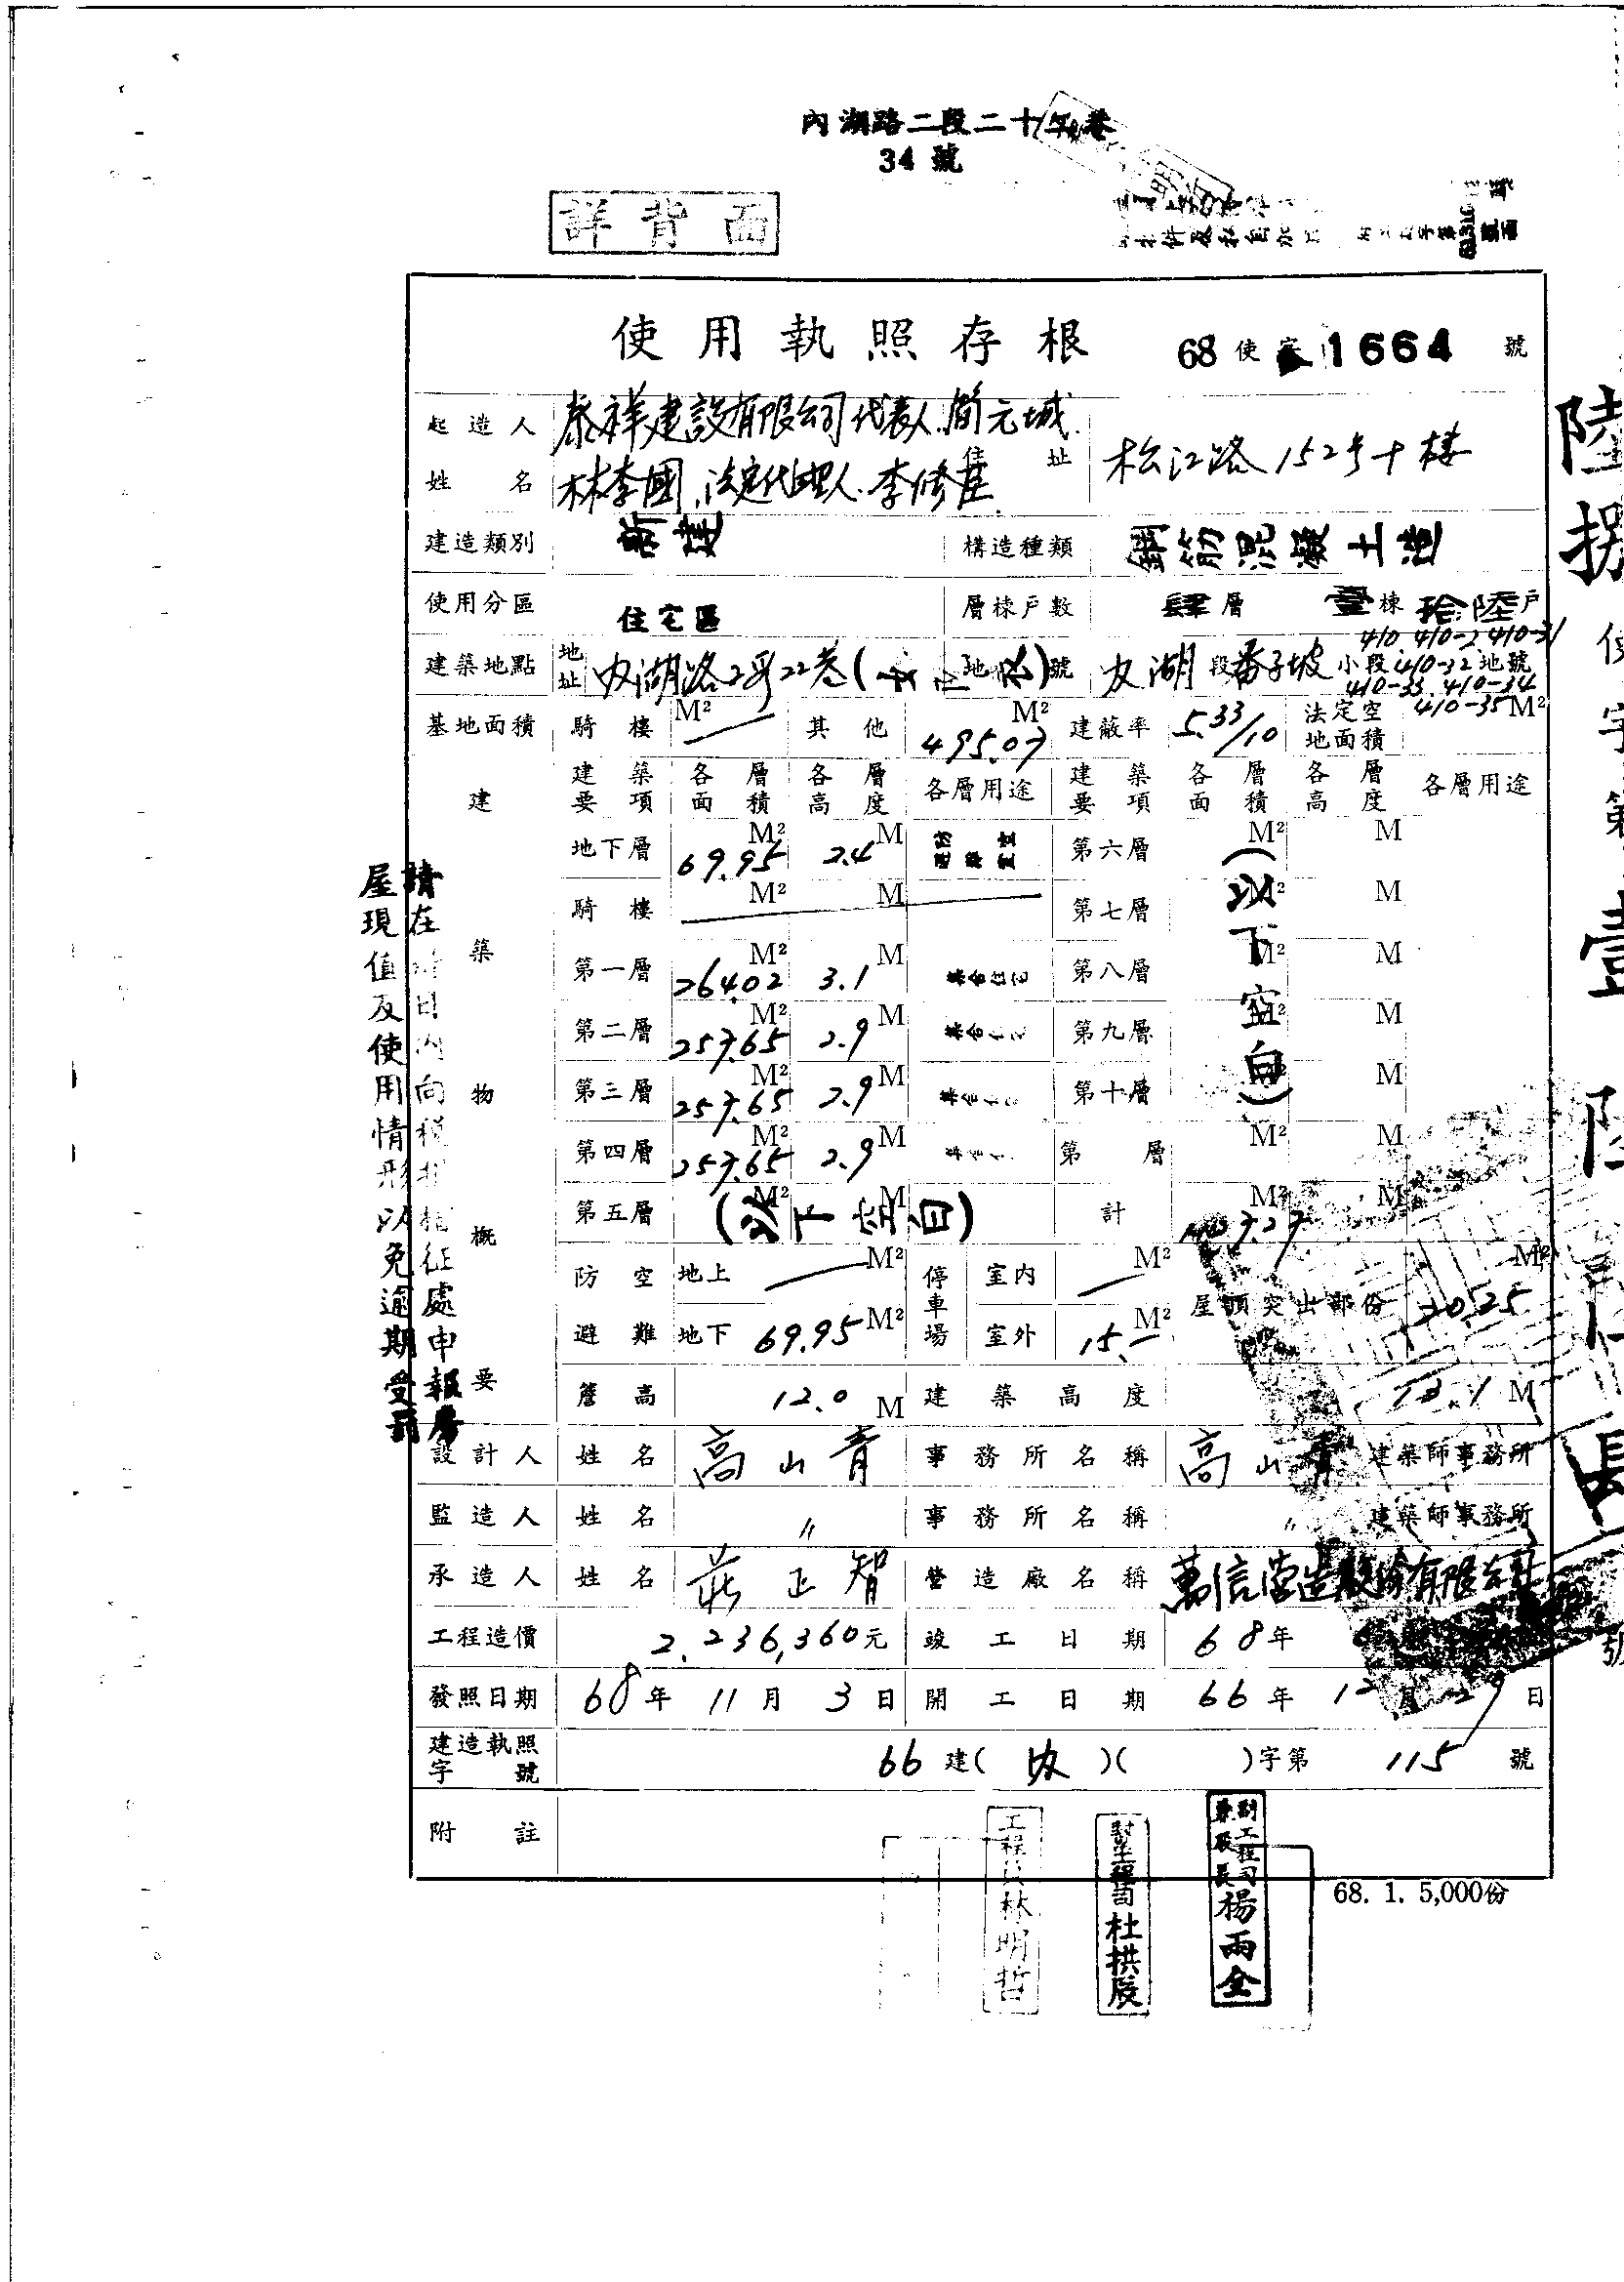 內湖路二段二十
34 號
詳背面
使用執照存根 68 使字 1664 號
起造人姓名 泰祥建設有限公司代表人.簡元城.
林李國.法定代理人.李修崑
住址 松江路152号十樓
建造類別 新建 構造種類 鋼筋混凝土造
使用分區 住宅區 層棟戶數 肆層 壹棟 拾陸戶
建築地點 地址 內湖路2段22巷( )號 地號 內湖段番子坡小段 410 410-2 410-31 410-32 地號
410-33. 410-34
410-35
基地面積 騎樓 M² 其他 495.07 M² 建蔽率 5.33/10 法定空地面積 M²
建築物概要
建築要項 各層面積 各層高度 各層用途 建築要項 各層面積 各層高度 各層用途
地下層 69.95 M² 2.4 M 第六層 M² M
騎樓 M² M 第七層 M² M
第一層 264.02 M² 3.1 M 集合住宅 第八層 M² M
第二層 257.65 M² 2.9 M 第九層 M² M
第三層 257.65 M² 2.9 M 第十層 M² M
第四層 257.65 M² 2.9 M 第 層 M² M
第五層 M² M 計 M² M
(以下空白)
(以下空白)
防空避難 地上 M² 停車場 室內 M² 屋頂突出部份 M²
地下 69.95 M² 室外 15.- M²
簷高 12.0 M 建築高度 13.1 M
設計人 姓名 高山青 事務所名稱 高山青 建築師事務所
監造人 姓名 〃 事務所名稱 〃 建築師事務所
承造人 姓名 莊正智 營造廠名稱 萬信營造股份有限公司
工程造價 2,236,360元 竣工日期 68年
發照日期 68年 11月 3日 開工日期 66年 12月 29日
建造執照字號 66 建( 內 )( )字第 115 號
附註
68. 1. 5,000份
工程員林明哲
杜拱辰
副工程司兼股長楊雨全
屋現值及使用情形以免逾期受罰
陸捌使字第壹陸
號